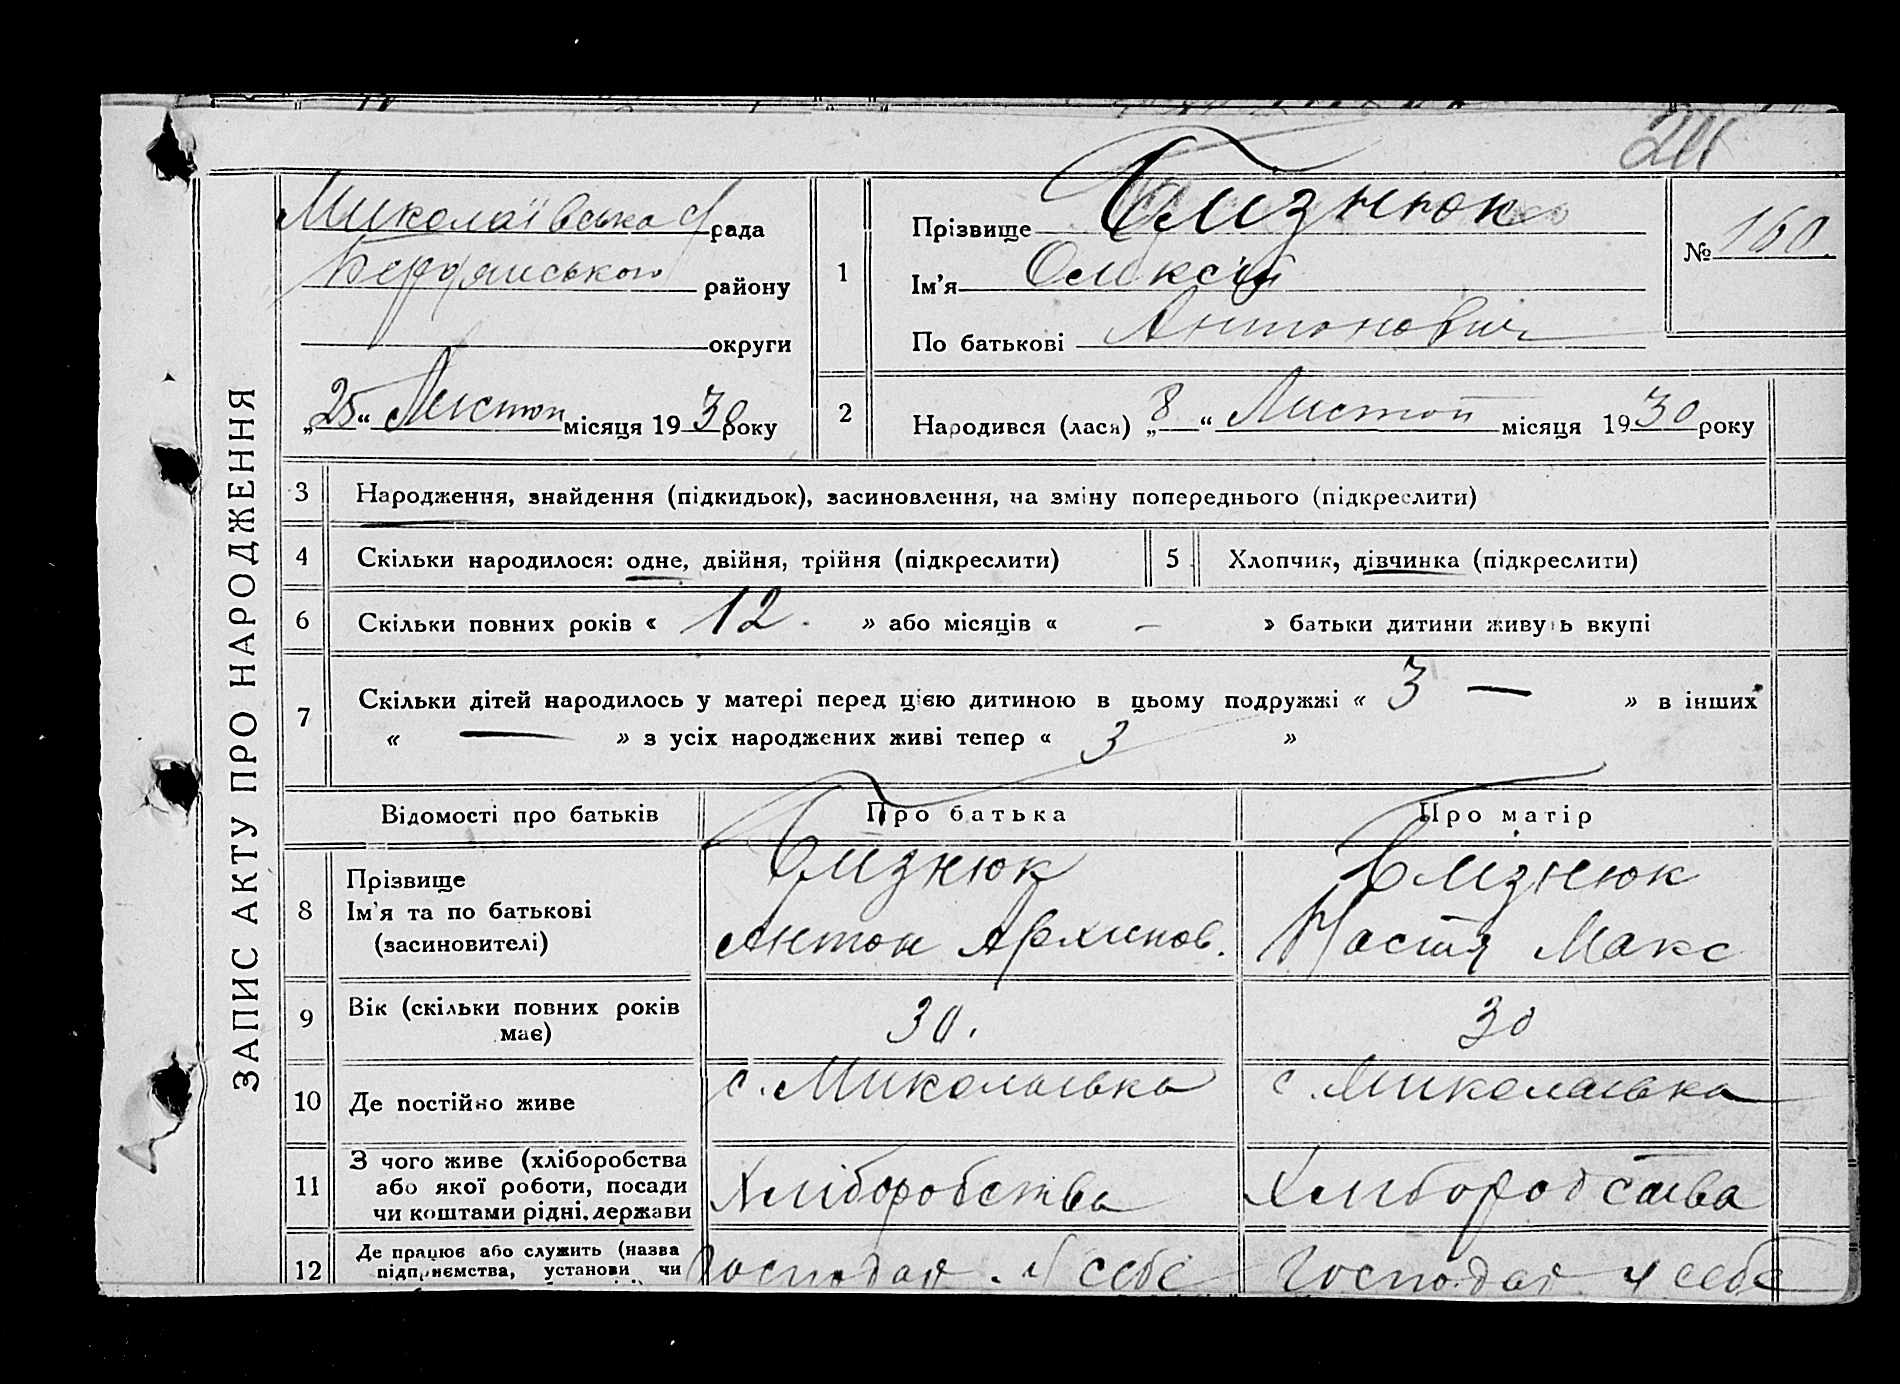 ЗАПИС АКТУ ПРО НАРОДЖЕННЯ
Миколаївська с/рада
Бердянського району
округи
„25“ Листоп місяця 1930 року
1
Прізвище Близнюк
Ім'я Олексій
По батькові Антонович
№ 160.
2
Народився (лася) „8“ Листоп місяця 1930 року
3 Народження, знайдення (підкидьок), засиновлення, на зміну попереднього (підкреслити)
4 Скільки народилося: одне, двійня, трійня (підкреслити)
5 Хлопчик, дівчинка (підкреслити)
6 Скільки повних років « 12. » або місяців « – » батьки дитини живуть вкупі
7 Скільки дітей народилось у матері перед цією дитиною в цьому подружжі « 3 — » в інших
« — » з усіх народжених живі тепер « 3 »
Відомості про батьків Про батька Про матір
8 Прізвище
Ім'я та по батькові
(засиновителі)
Близнюк
Антон Архипов.
Близнюк
Настя Макс
9 Вік (скільки повних років
має)
30.
30
10 Де постійно живе
с. Миколаївка
с. Миколаївка
11 З чого живе (хліборобства
або якої роботи, посади
чи коштами рідні, держави
Хліборобства
Хлиборобства
12 Де працює або служить (назва
підприємства, установи чи
Господар. У себе
Господар у себе